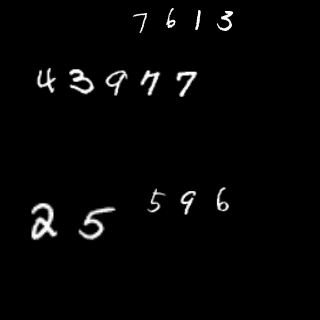 7613
43977
25
596